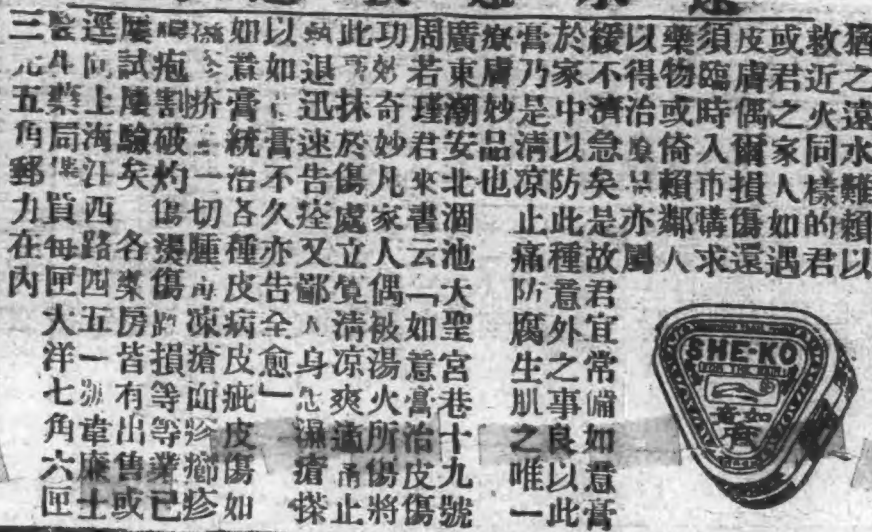 猶之遠水難賴以
救近火同樣的君
或君之家人如遇
皮膚偶爾損傷還
須臨時入市購求
藥物或倚賴鄰人
以得治 亦屬
緩不濟急矣是故君宜常備如意膏
於家中以防此種意外之事良以此
膏乃是清凉止痛防腐生肌之唯一
療膚妙品也
廣東潮安北涸池大聖宮巷十九號
周若瑾君來書云「如意膏治皮傷
功効奇妙凡家人偶被湯火所傷將
此膏抹於傷處立覺清凉爽 痛止
熱退迅速告痊又鄙人身 濕瘡搽
以如 膏不久亦告全愈」
如意膏統治各種皮病皮疵皮傷如
疥 一切腫 凍瘡面疹 疹
疱割破灼傷燙傷 損等等業已
屢試屢驗矣 各藥房皆有出售或
逕向上海江西路四五一號韋廉士
醫生藥局 買每匣大洋七角六匣
三元五角郵力在內
SHE-KO
如意膏